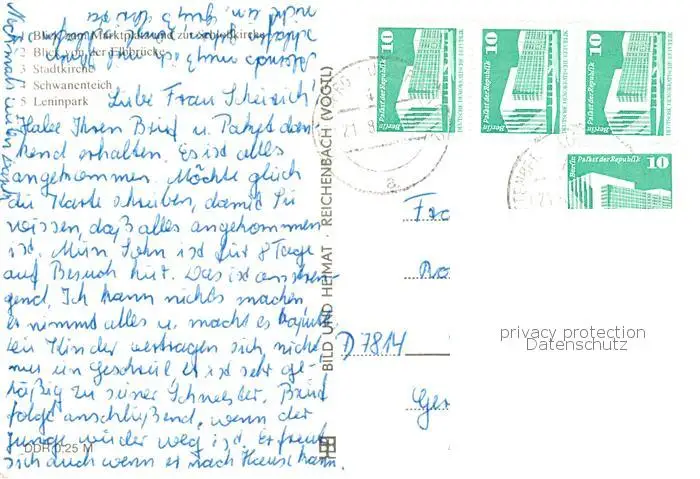 1 Blick zum Marktplatz und zur Schloßkirche
2 Blick von der Elbbrücke
3 Stadtkirche
4 Schwanenteich
5 Leninpark
Liebe Frau
Habe Ihren Brief u. Paket dan-
kend erhalten. Es ist alles
angekommen. Möchte gleich
die Karte schreiben, damit Sie
wissen, daß alles angekommen
ist. Mein Sohn ist für 8 Tage
auf Besuch hier. Das ist anstren-
gend. Ich kann nichts machen
er nimmt alles u. macht es kaputt.
Die Kinder vertragen sich nicht
nur ein Geschrei er ist sehr ge-
häßig zu seiner Schwester. Brief
folgt anschließend, wenn der
Junge wieder weg ist. Er freut
sich auch wenn er nach Hause kann.
Nochmals lieben Dank
DDR 0.25 M
BILD UND HEIMAT · REICHENBACH (VOGTL)
10
Berlin Palast der Republik
DEUTSCHE DEMOKRATISCHE REPUBLIK
10
Berlin Palast der Republik
DEUTSCHE DEMOKRATISCHE REPUBLIK
10
Berlin Palast der Republik
DEUTSCHE DEMOKRATISCHE REPUBLIK
10
Berlin Palast der Republik
Fra
D 7814
Ger
privacy protection
Datenschutz